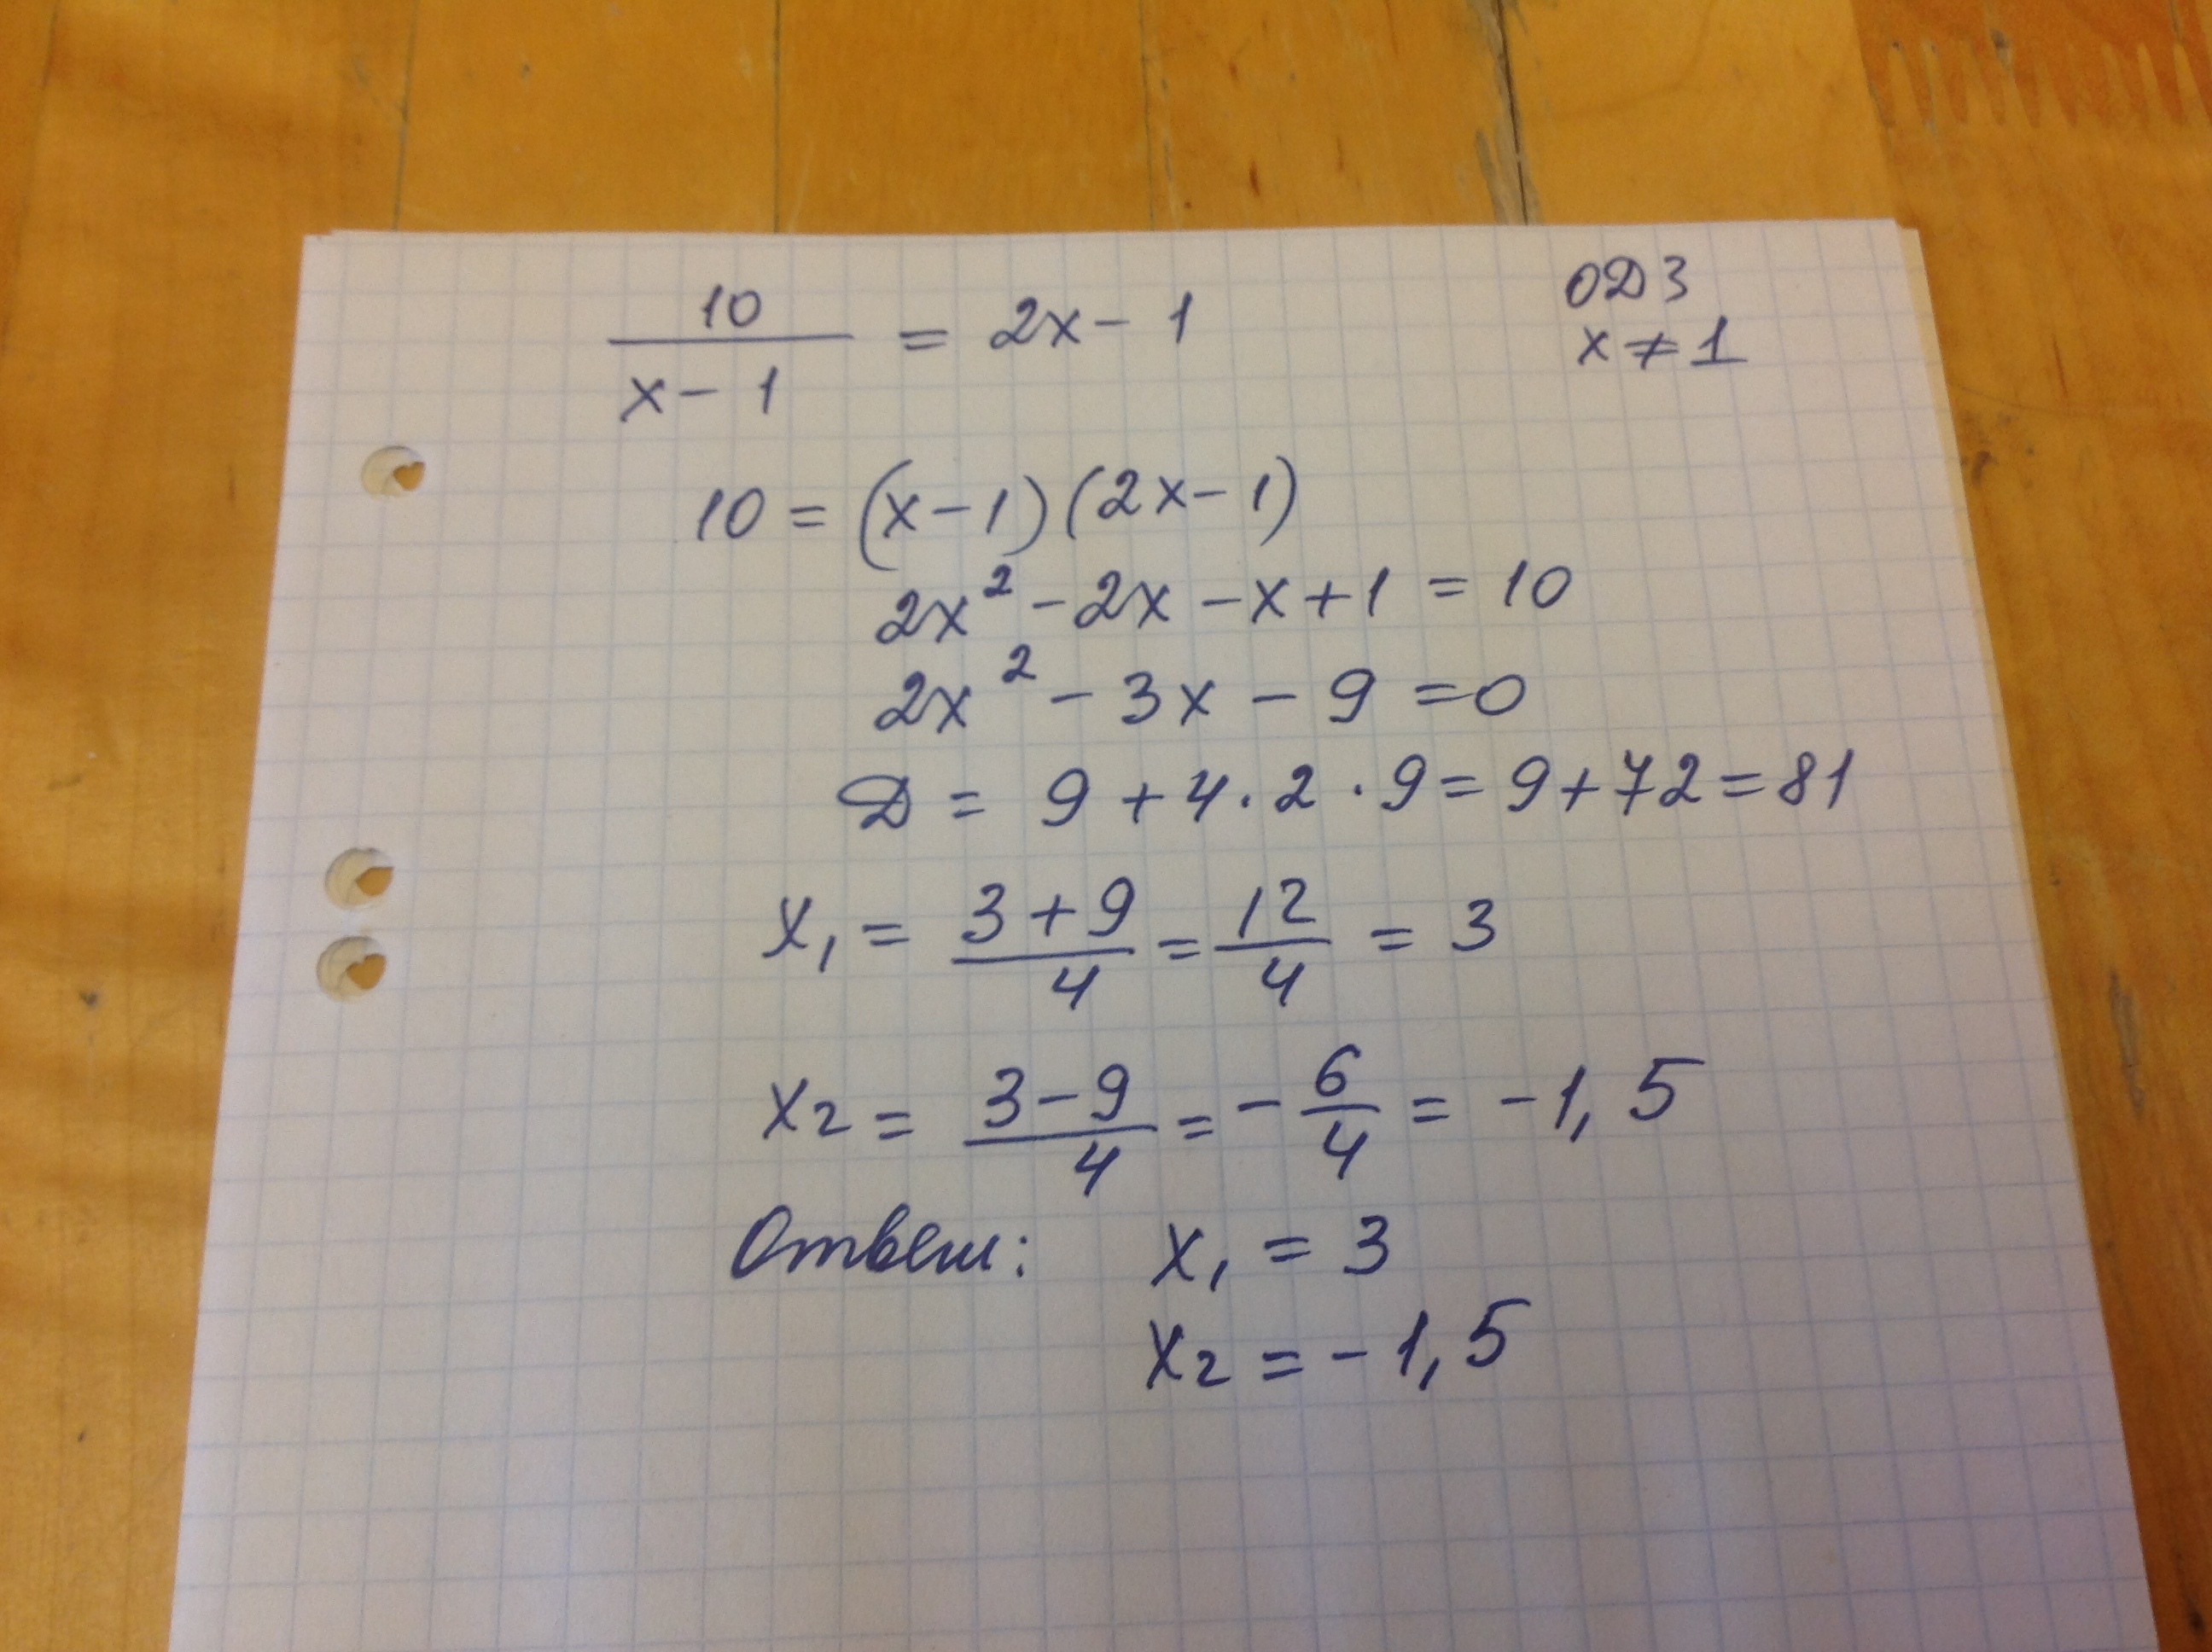 10/(x-1) = 2x-1
ОДЗ
x≠1
10=(x-1)(2x-1)
2x²-2x-x+1=10
2x²-3x-9=0
Д=9+4·2·9=9+72=81
x₁=(3+9)/4=12/4=3
x₂=(3-9)/4=-6/4=-1,5
Ответ: x₁=3
x₂=-1,5